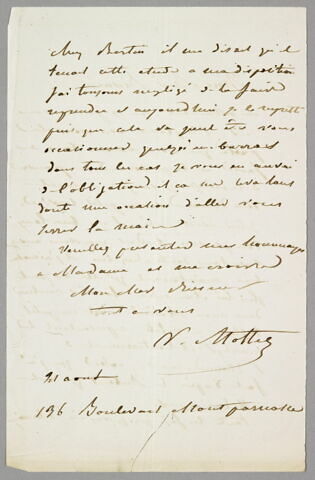 chez Bertin il me disait qu'il
tenait cette etude a ma disposition
J'ai toujours negligé de la faire
reprendre et aujourdhui je le regrette
puis que cela va peut être vous
occasionner quelqu'embarras
dans tous les cas je vous en aurai
de l'obligation et ca me vaudra
doute une occation d'aller vous
serrer la main
Veuillez presenter mes hommages
a Madame et me croire
Mon cher
tout a vous
V. Mottez
21 aout
136 Boulevart Montparnasse